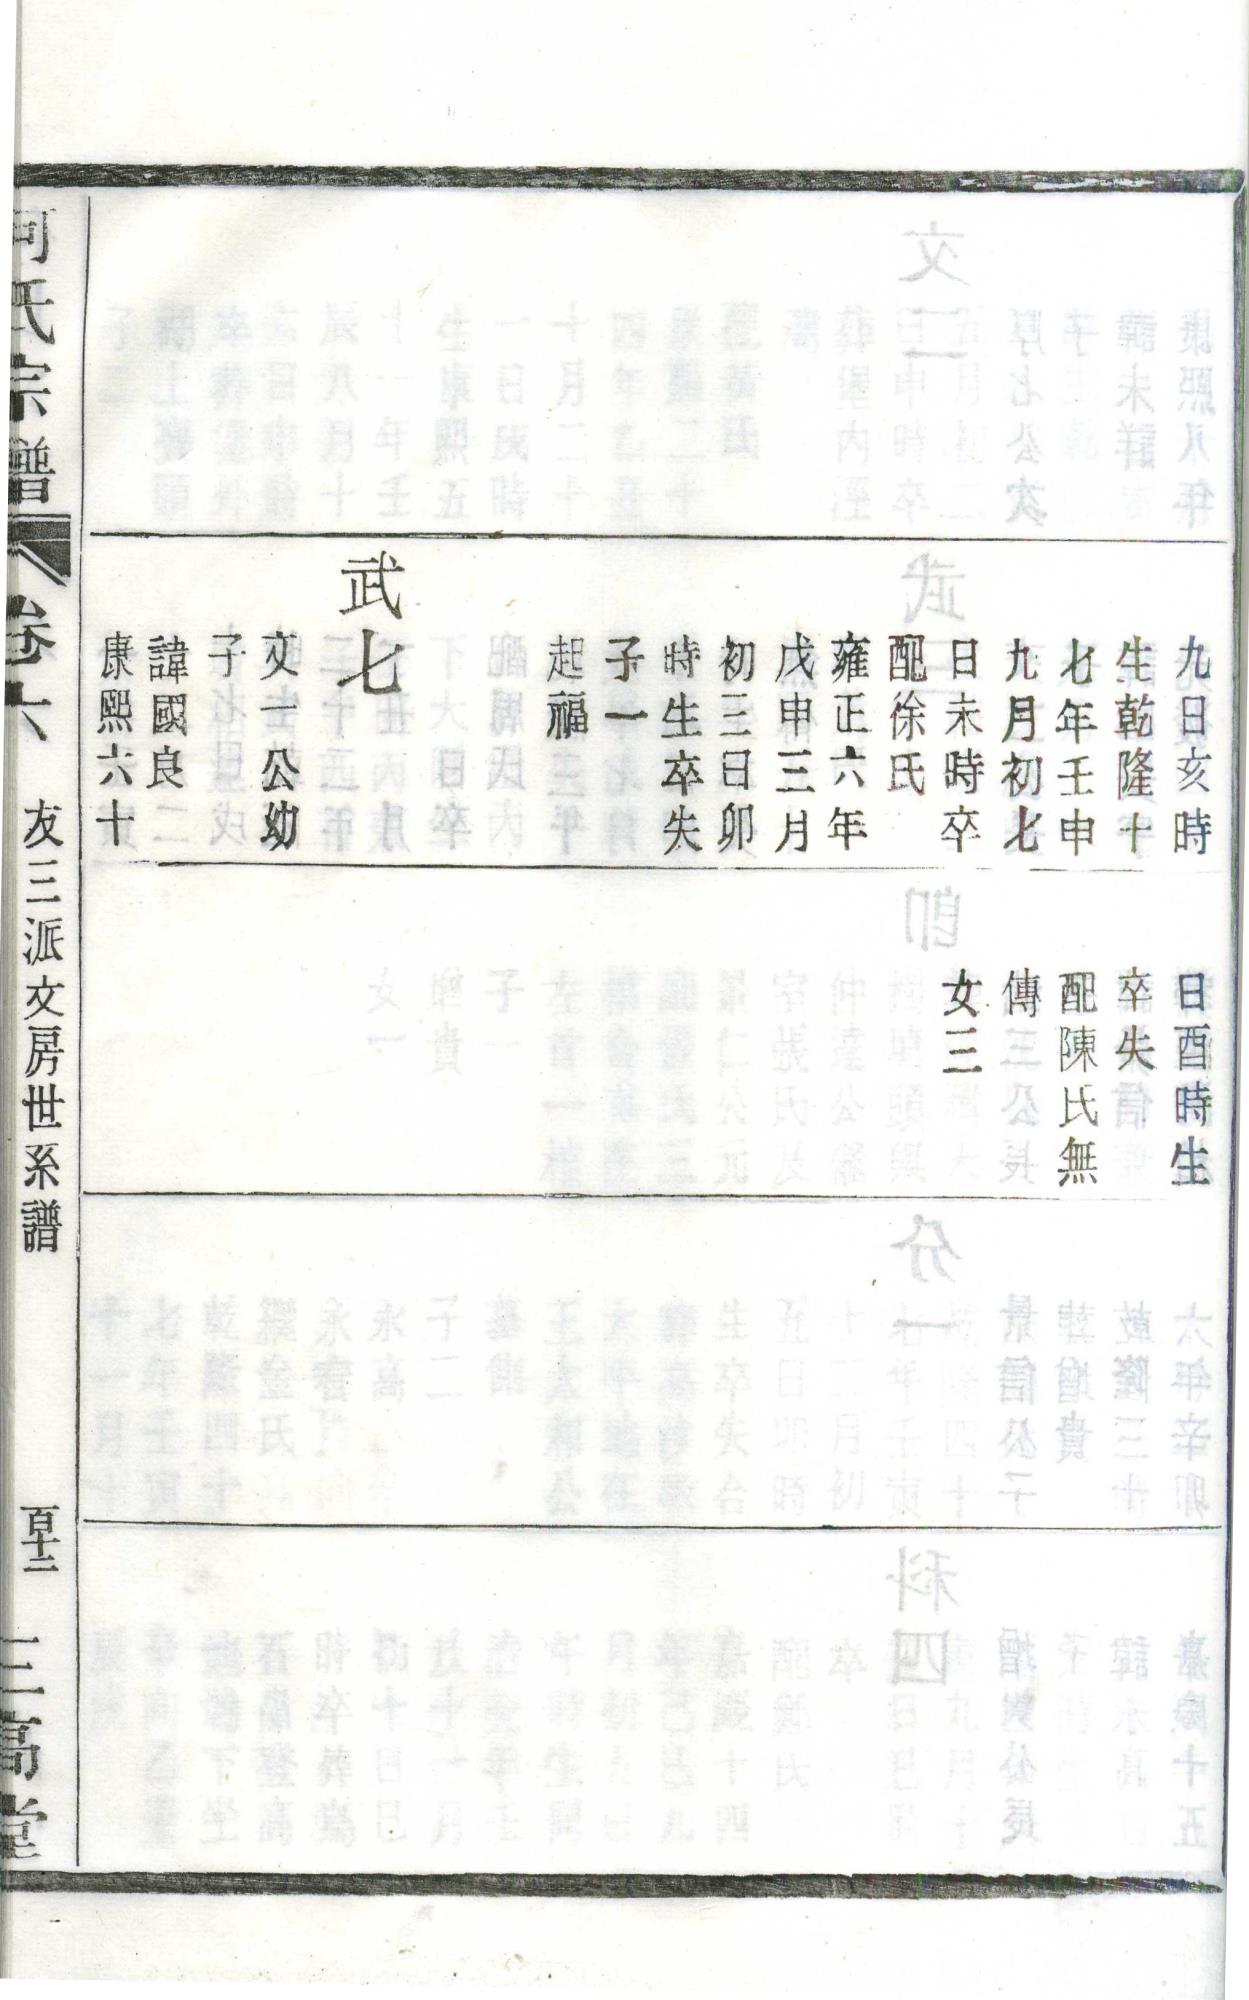 九日亥時
生乾隆十
七年壬申
九月初七
日未時卒
配徐氏
雍正六年
戊申三月
初三日卯
時生卒失
子一
起福
武七
文一公幼
子
諱國良
康熙六十
日酉時生
卒失
配陳氏無
傳
女三
何氏宗譜
卷六
友三派文房世系譜
百十二
三高堂